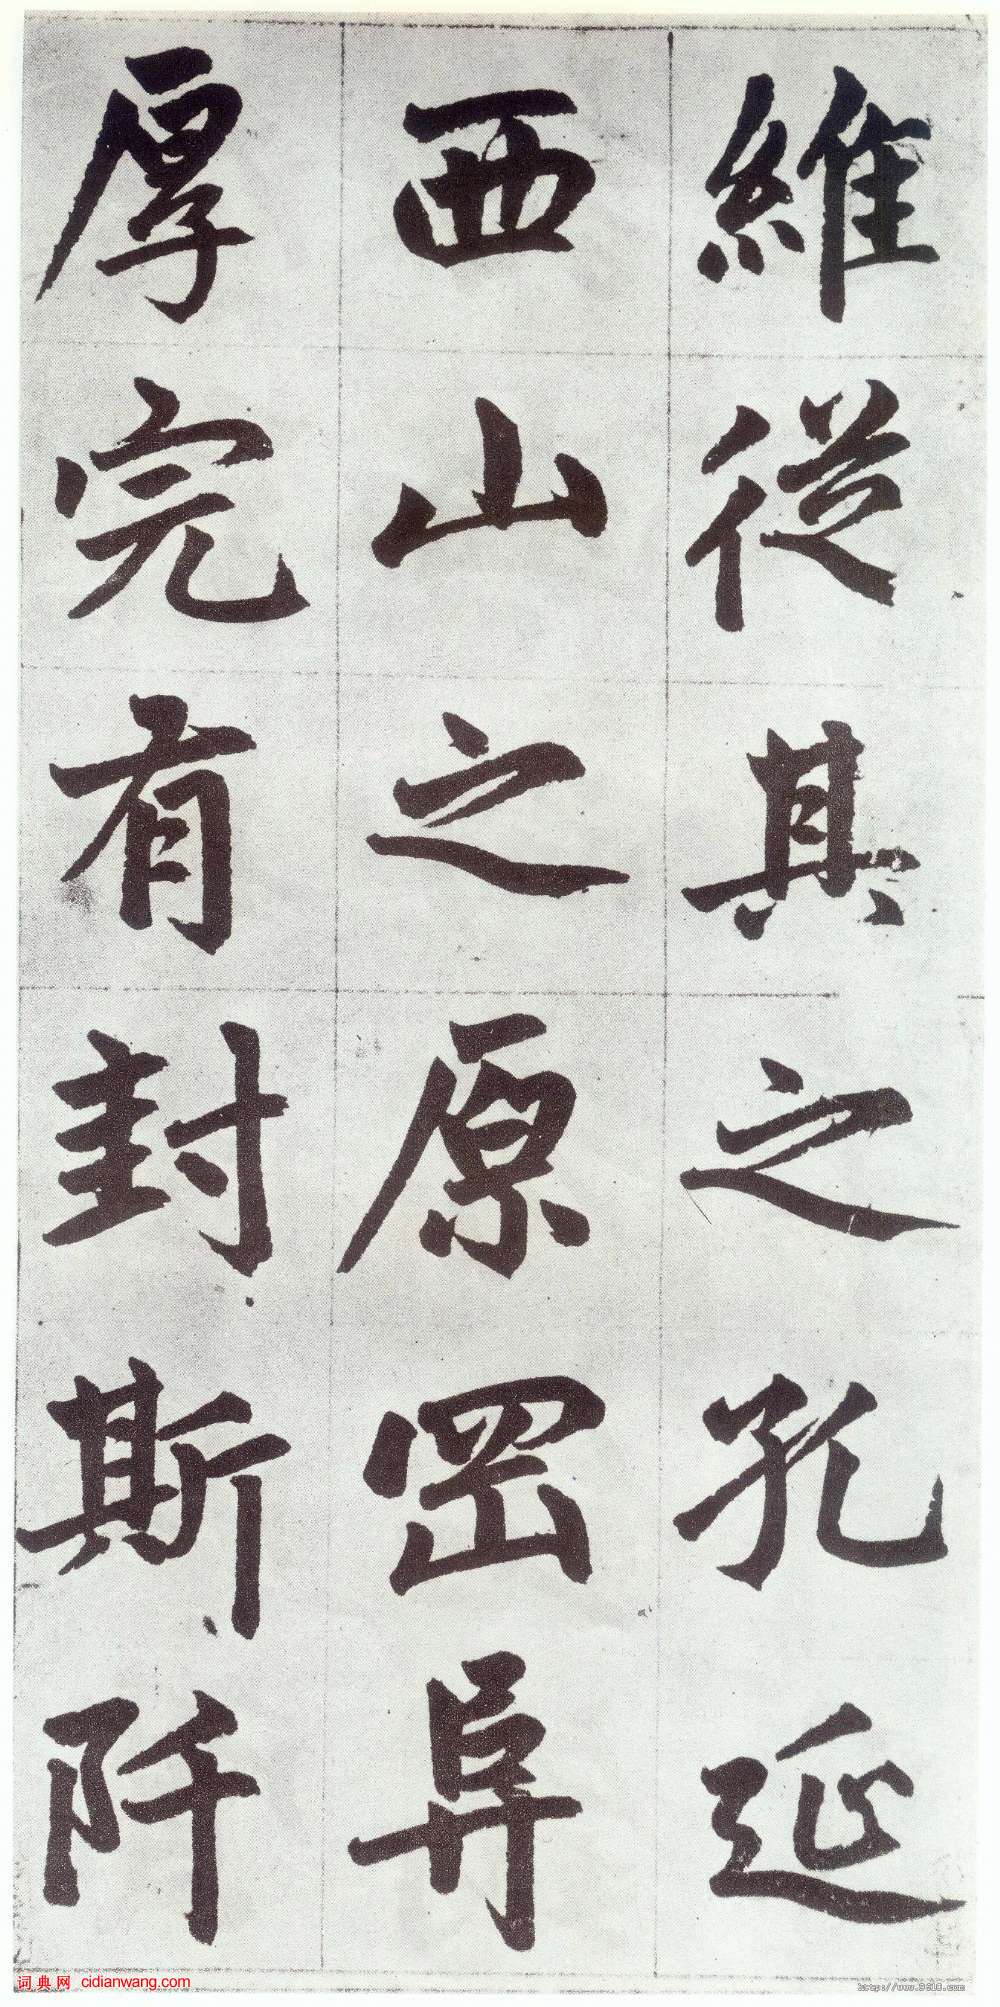 維從其之孔延
西山之原罡阜
厚完有封斯阡
词典网 cidianwang.com
http://www.9610.com